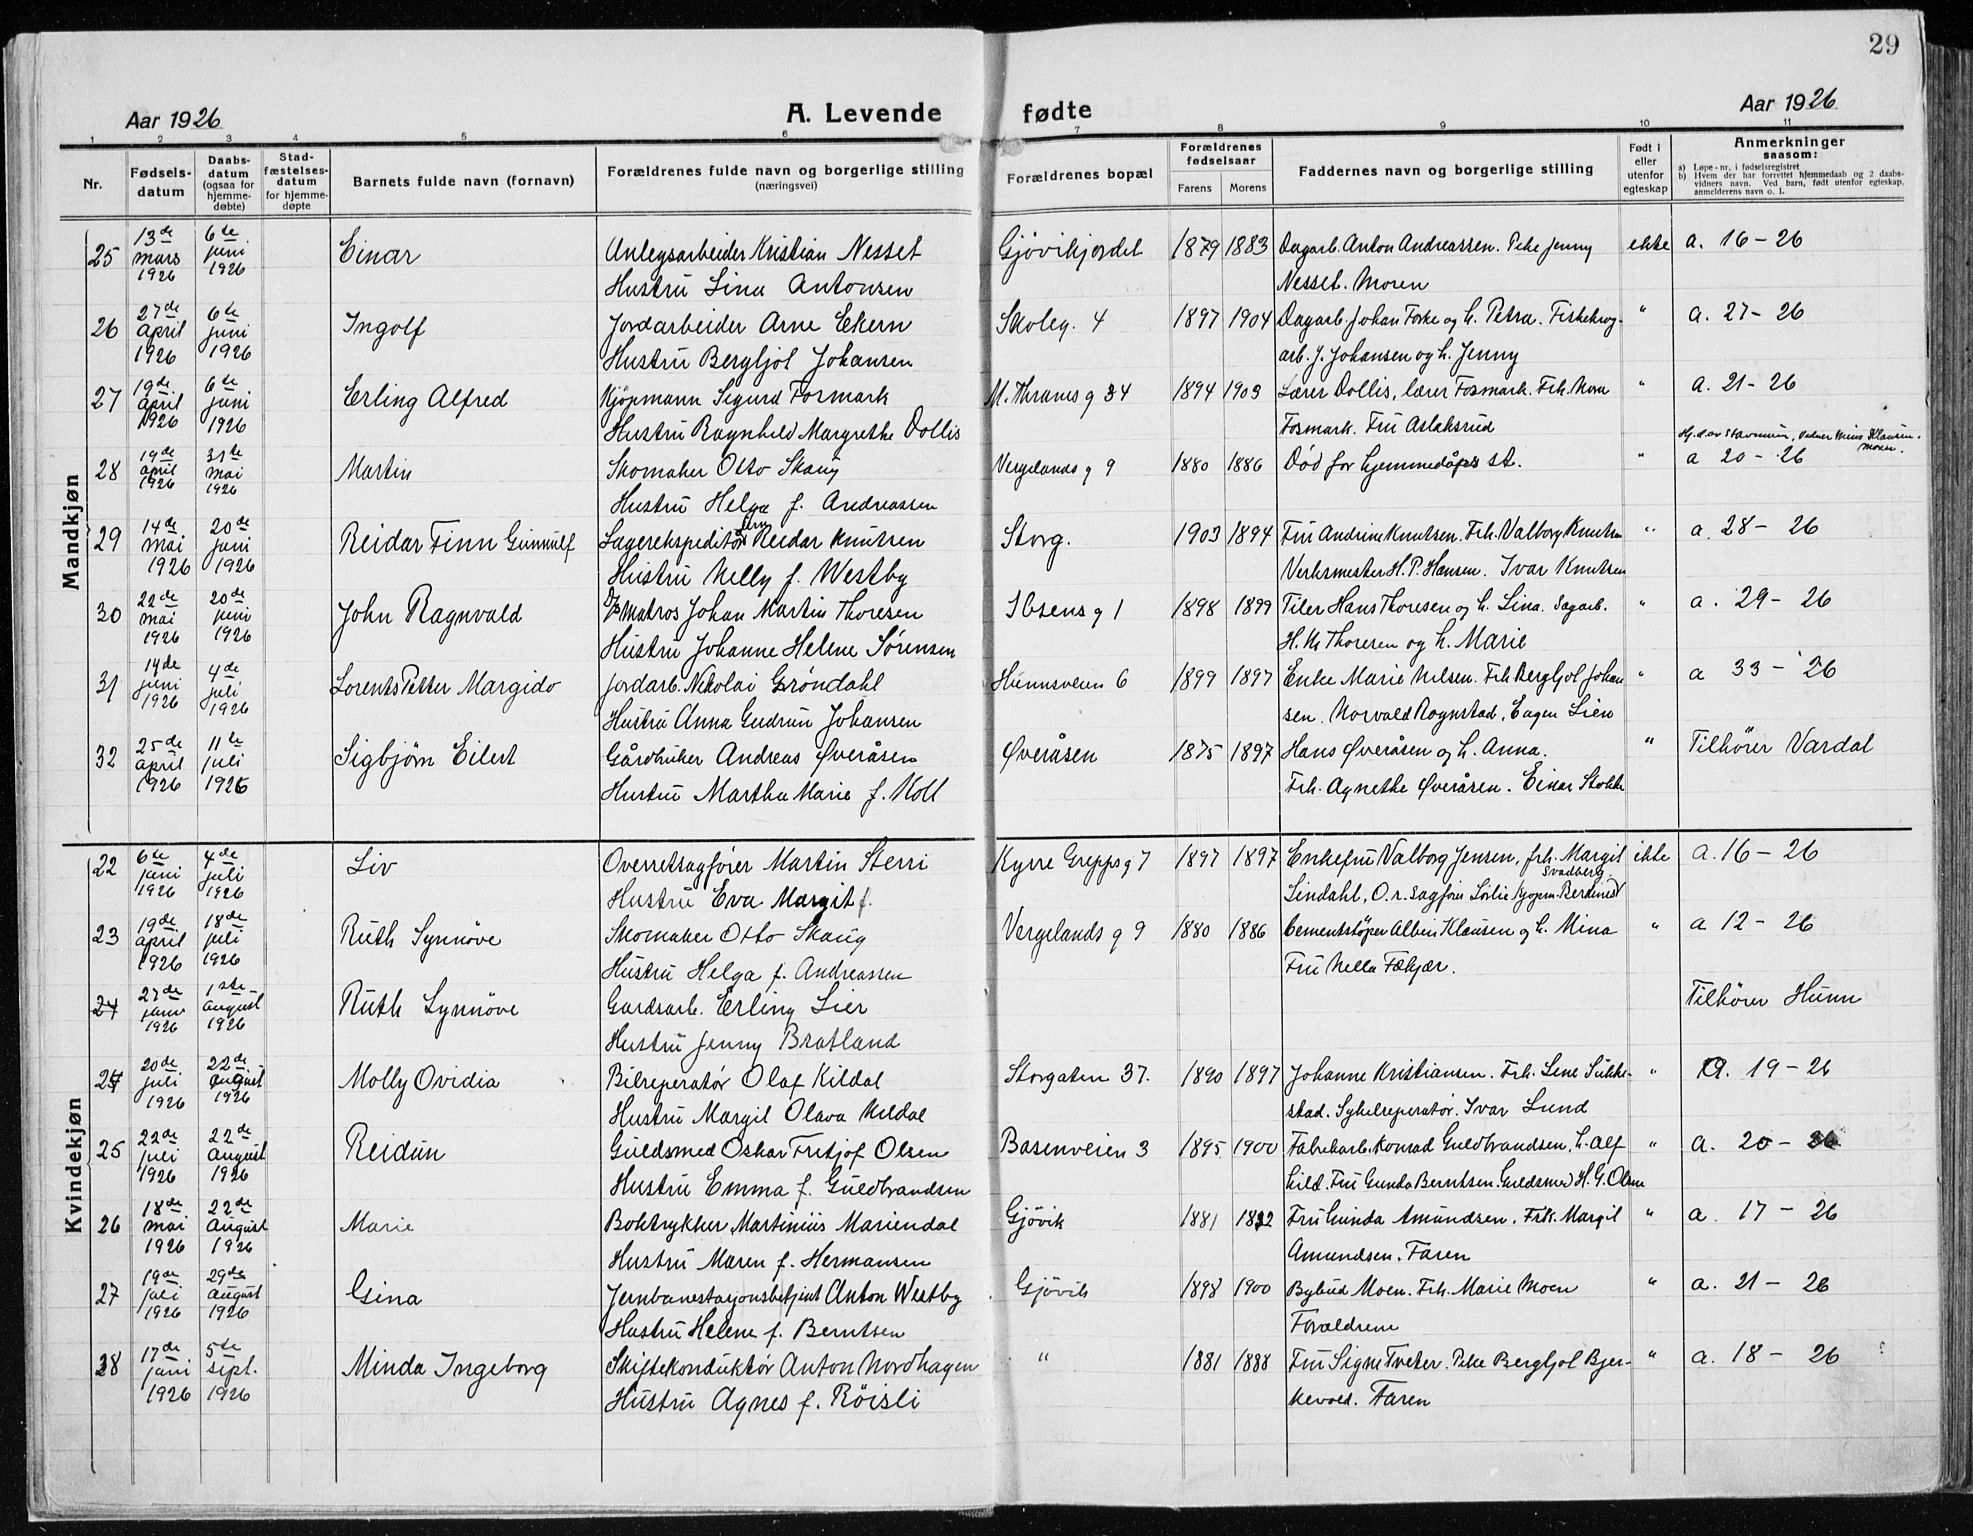 29
Aar 1926
A. Levende
fødte
Aar 1926
1 2 3 4 5 6 7 8 9 10 11
Nr.
Fødsels-
datum
Daabs-
datum
(ogsaa for
hjemme-
døbte)
Stad-
fæstelses-
datum
for hjemme-
døpte
Barnets fulde navn (fornavn)
Forældrenes fulde navn og borgerlige stilling
(næringsvei)
Forældrenes bopæl
Forældrenes
fødselsaar
Farens
Morens
Faddernes navn og borgerlige stilling
Født i
eller
utenfor
egteskap
Anmerkninger
saasom:
a) Løpe-nr. i fødselsregistret
b) Hvem der har forrettet hjemmedaab og 2 daabs-
vidners navn. Ved barn, født utenfor egteskap,
anmelderens navn o. l.
Mandkjøn
25 13de mars 1926 6te juni 1926 Einar Anlegsarbeider Kristian Nesset Gjøvikjordet 1879 1883 Dagarb. Anton Andreassen. Pike Jenny ikke a. 16-26
Hustru Lina Antonsen Nesset. Moren
26 27de april 1926 6te juni 1926 Ingolf Jordarbeider Arne Ekern Skoleg. 4 1897 1904 Dagarb. Johan Foske og h. Petra. Fiskekrog- " a. 27-26
Hustru Bergljot Johansen arb. J. Johansen og h. Jenny
27 19de april 1926 6te juni 1926 Erling Alfred Kjøpmann Sigurd Fosmark M. Thranes g 34 1894 1903 Lærer Dollis, lærer Fosmark. Frk. Mona " a. 21-26
Hustru Ragnhild Margrethe Dollis Fosmark. Fru Aslaksrud
Klausen.
Moren.
28 19de april 1926 31te mai 1926 Martin Skomaker Otto Skaug Vergelands g 9 1880 1886 Død før hjemmedåpss st. " a 20-26
Hustru Helga f. Andreassen
29 14de mai 1926 20de juni 1926 Reidar Finn Gunnulf Lagerekspeditør Finn Reidar Knutsen Storg. 1903 1894 Fru Andrine Knutsen. Frk. Valborg Knutsen " a. 28-26
Hustru Nelly f. Westby Verksmester H. P. Hansen. Ivar Knutsen
30 22de mai 1926 20de juni 1926 John Ragnvald Matros Johan Martin Thoresen Ibsens g 1 1898 1899 Tiler Hans Thoresen og h. Lina. Sagarb. " a. 29-26
Hustru Johanne Helene Sørensen H. M Thoresen og h. Marie
31 14de juni 1926 4de juli 1926 Lorents Petter Margido Jordarb. Nikolai Grøndahl Hunnsveien 6 1899 1897 Enke Marie Nilsen. Frk Bergljot Johan " a 33-26
Hustru Anna Gudrun Johansen sen. Norvald Rognstad, Eugen Lien
32 25de april 1926 11te juli 1926 Sigbjørn Eilert Gårdbruker Andreas Øveråsen Øveråsen 1875 1897 Hans Øveråsen og h. Anna. " Tilhører Vardal
Hustru Martha Marie f. Koll Frk. Agnethe Øveråsen. Einar Stokke
Kvindekjøn
22 6te juni 1926 4de juli 1926 Liv Overretsagfører Martin Sterri Kyrre Grepps g 7 1897 1897 Enkefru Valborg Jensen, frk. Margit ikke a. 16-26
Svadberg.
Hustru Eva Margit f. Lindahl, O.r. sagfører Sørlie
23 19de april 1926 18de juli 1926 Ruth Synnøve Skomaker Otto Skaug Vergelands g 9 1880 1886 Cementstøper Albin Klausen og h. Mina " a 12-26
Hustru Helga f. Andreassen Fru Nella Fækjær.
24 27de 1926 1ste august 1926 Ruth Synnøve Gardsarb. Erling Lier Tilhører Hunn
Hustru Jenny Bratland
24 20de juli 1926 22de august 1926 Molly Ovidia Bilreperatør Olaf Kildal Storgaten 37. 1890 1897 Johanne Kristiansen. Frk. Lene Sukke- " a. 19-26
Hustru Margit Olava Kildal stad. Sykelreperatør. Ivar Lund
25 22de juli 1926 22de august 1926 Reidun Guldsmed Oskar Fritjof Olsen Bassenveien 3 1895 1900 Fabrikarb. Konrad Guldbrandsen, h. Alf " a. 20-26
Hustru Emma f. Guldbrandsen hild. Fru Gunda Berntsen. Guldsmed H. G. Olsen
26 18de mai 1926 22de august 1926 Marie Boktrykker Martinius Mariendal Gjøvik 1881 1882 Fru Gunda Amundsen. Frk. Margit " a. 17-26
Hustru Maren f. Hermansen Amundsen. Faren
27 19de juli 1926 29de august 1926 Gina Jernbanestasjonsbetjent Anton Westby Gjøvik 1898 1900 Bybud Moen. Frk. Marie Moen " a. 21-26
Hustru Helene f. Berntsen Forældrene
28 17de juni 1926 5te sept. 1926 Minda Ingeborg Skiftekonduktør Anton Nordhagen " 1881 1888 Fru Signe Tveter. Pike Bergljot Bjer- " a. 18-26
Hustru Agnes f. Røisli kevold. Faren